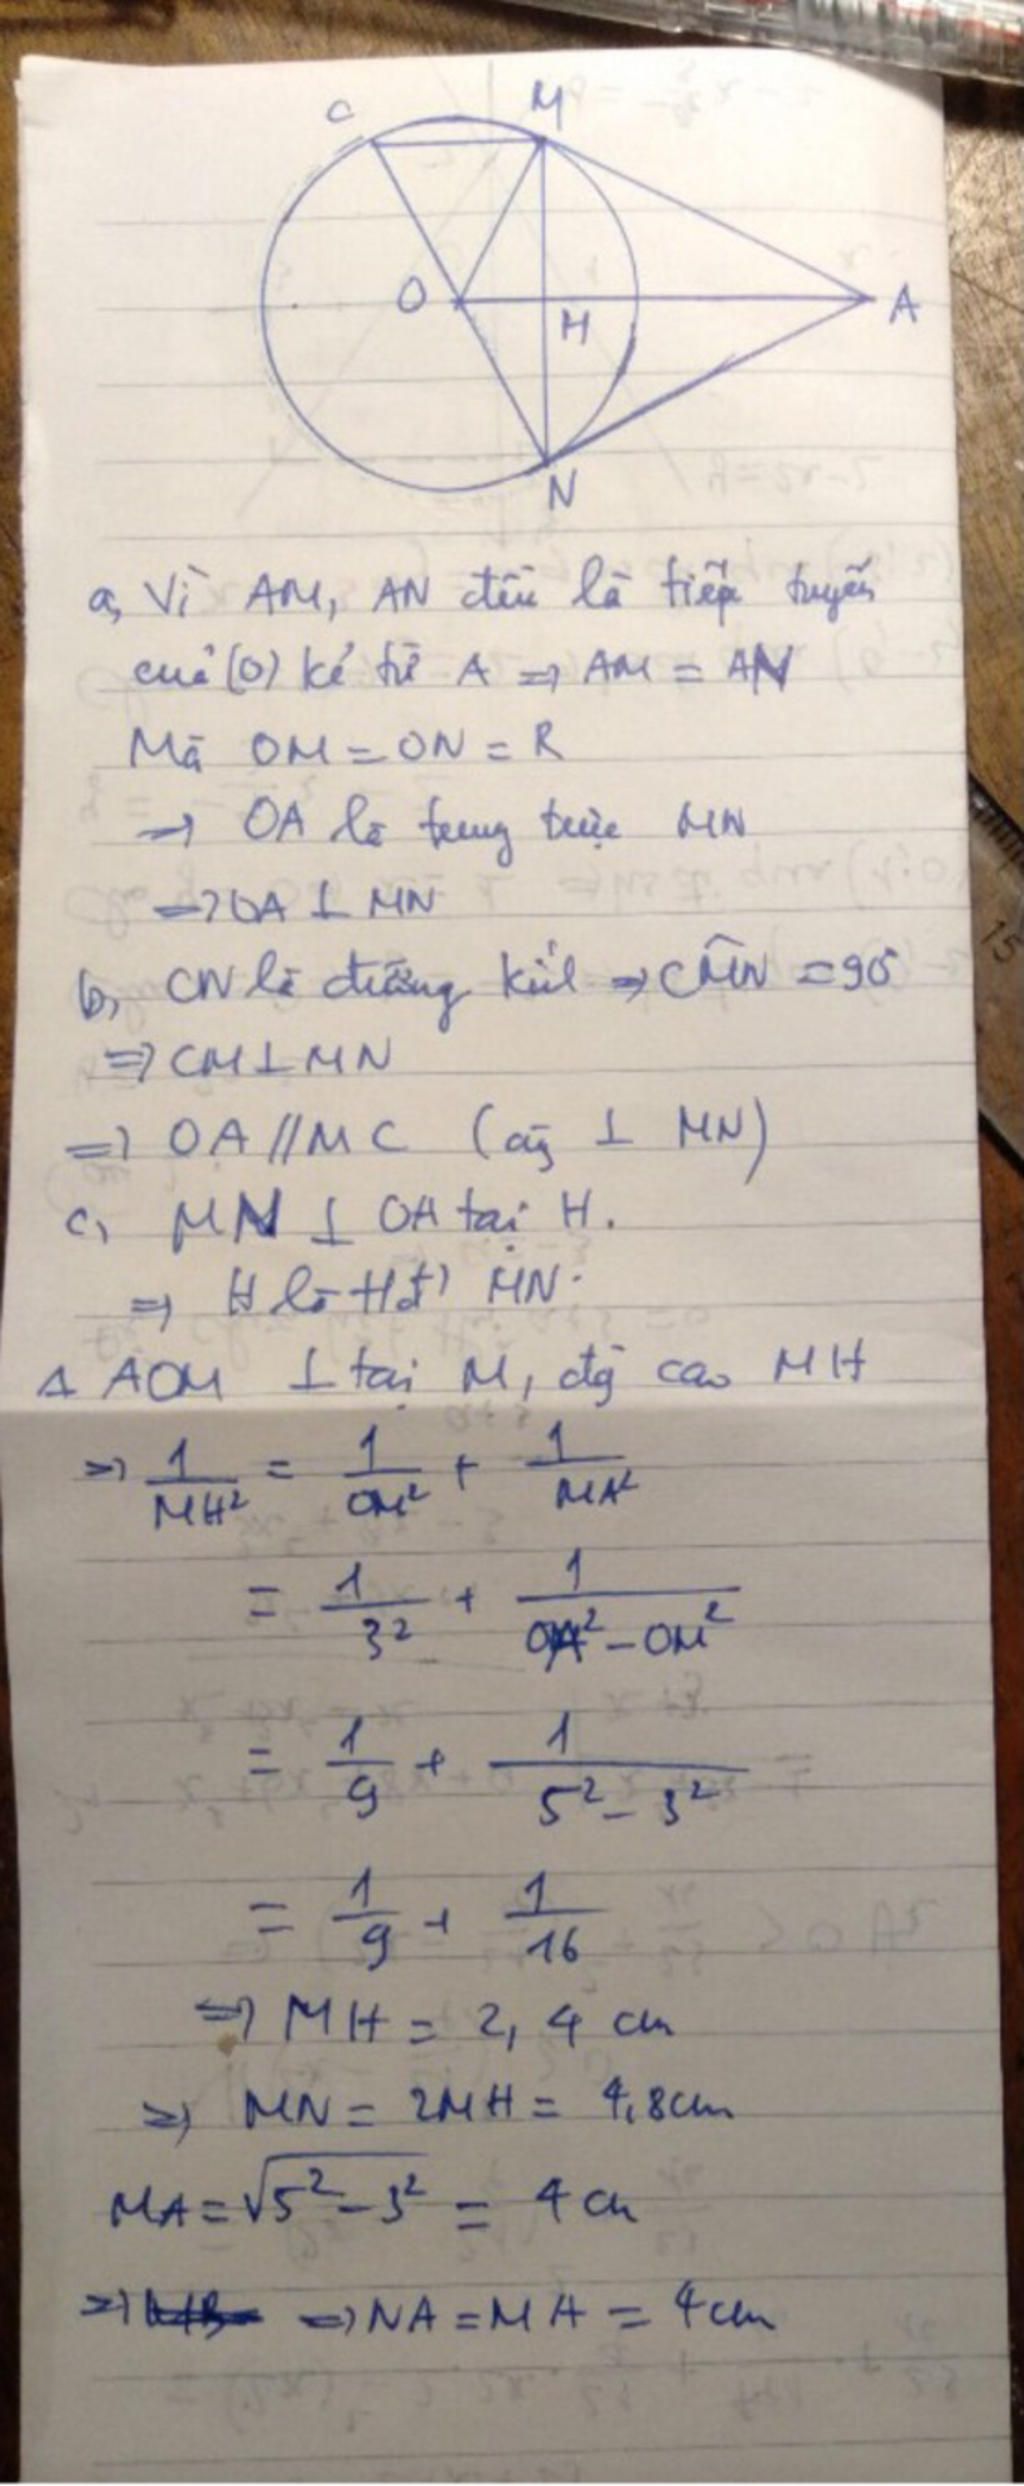 C M
O H A
N
a, Vì AM, AN đều là tiếp tuyến
của (O) kẻ từ A => AM = AN
Mà OM = ON = R
=> OA là trung trực MN
=> OA ⊥ MN
b, CN là đường kính => CMN = 90°
=> CM ⊥ MN
=> OA // MC (cg ⊥ MN)
c, MN ⊥ OA tại H.
=> H là trđ MN.
Δ AOM ⊥ tại M, đg cao MH
=> 1/MH² = 1/OM² + 1/MA²
= 1/3² + 1/OA² - OM²
= 1/9 + 1/5² - 3²
= 1/9 + 1/16
=> MH = 2,4 cm
=> MN = 2MH = 4,8cm
MA = √5² - 3² = 4 cm
=> => NA = MA = 4cm
15